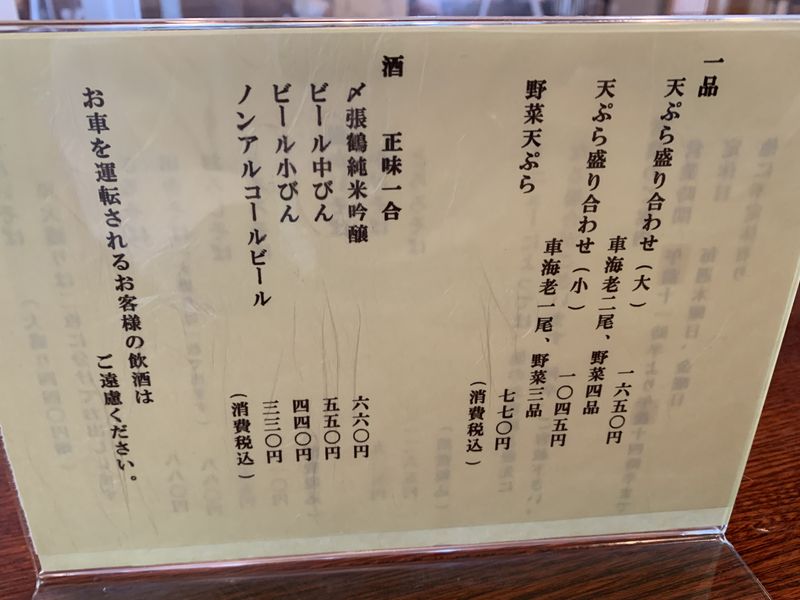 一品
天ぷら盛り合わせ（大） 一六五〇円
車海老二尾、野菜四品
天ぷら盛り合わせ（小） 一〇四五円
車海老一尾、野菜三品
野菜天ぷら 七七〇円
（消費税込）
酒 正味一合
〆張鶴純米吟醸 六六〇円
ビール中びん 五五〇円
ビール小びん 四四〇円
ノンアルコールビール 三三〇円
（消費税込）
お車を運転されるお客様の飲酒は
ご遠慮ください。